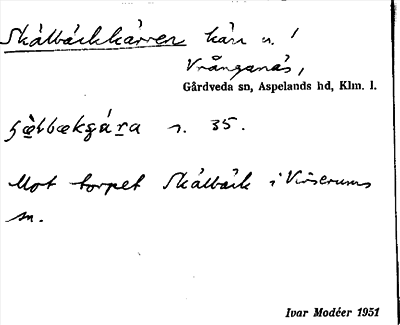 Skälbäckkärren kärr n. /
Vrånganäs,
Gårdveda sn, Aspelands hd, Klm. l.
s. 35.
Mot torpet Skälbäck i Virserums
sn.
Ivar Modéer 1951